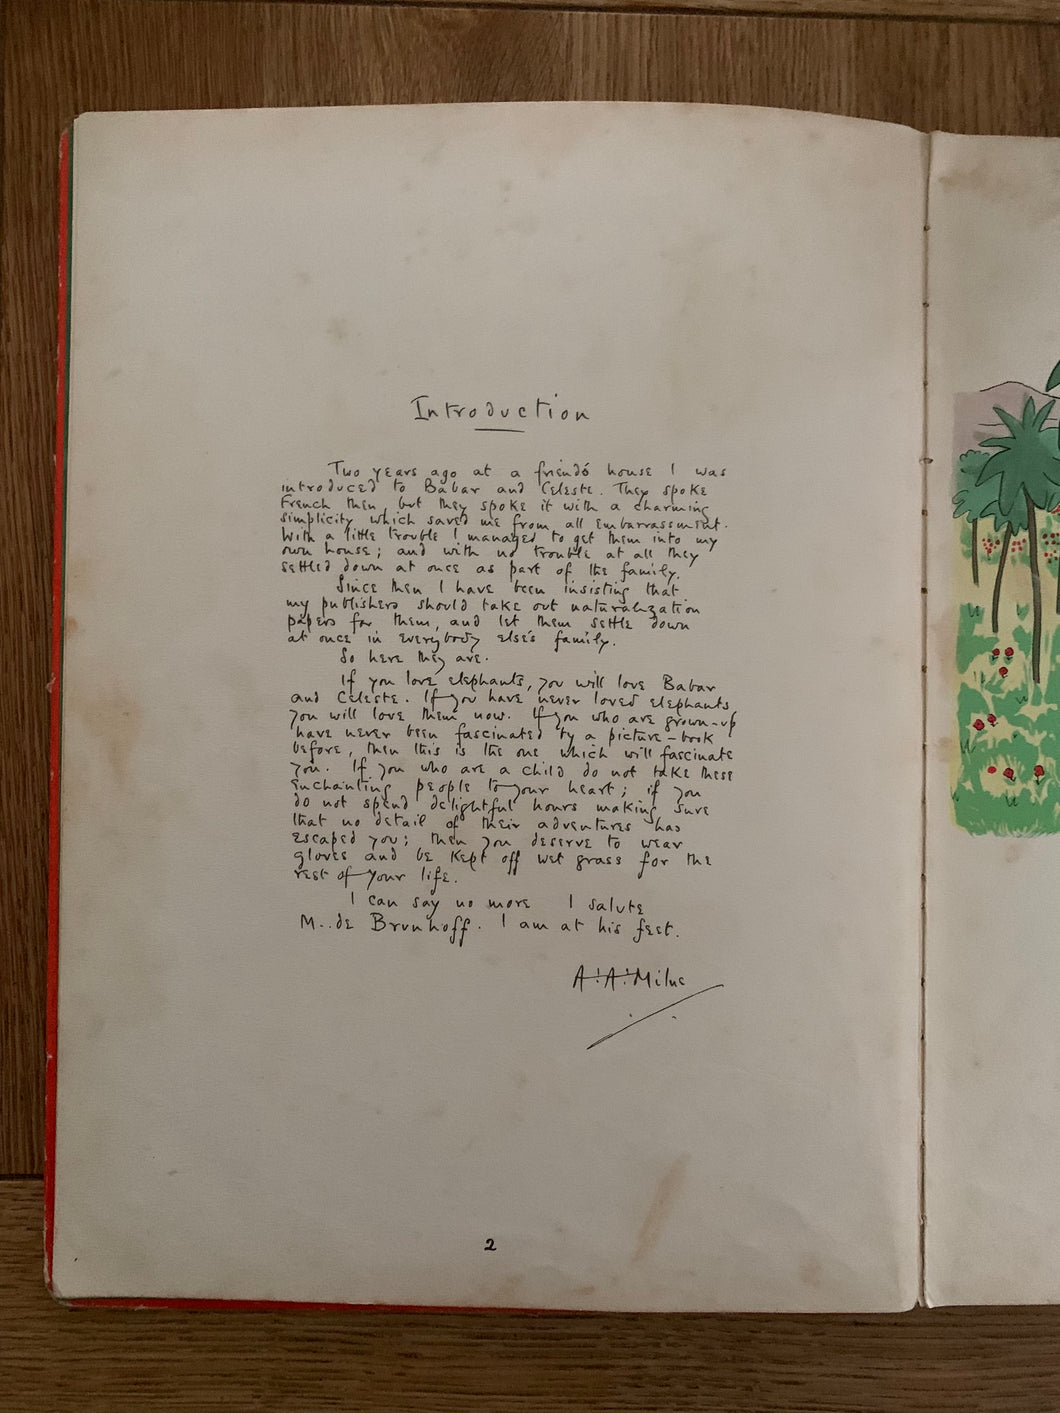 Introduction
Two years ago at a friend's house I was
introduced to Babar and Celeste. They spoke
French then, but they spoke it with a charming
simplicity which saved me from all embarrassment.
With a little trouble I managed to get them into my
own house; and with no trouble at all they
settled down at once as part of the family.
Since then I have been insisting that
my publishers should take out naturalization
papers for them, and let them settle down
at once in everybody else's family.
So here they are.
If you love elephants, you will love Babar
and Celeste. If you have never loved elephants
you will love them now. If you who are grown-up
have never been fascinated by a picture-book
before, then this is the one which will fascinate
you. If you who are a child do not take these
enchanting people to your heart; if you
do not spend delightful hours making sure
that no detail of their adventures has
escaped you; then you deserve to wear
gloves and be kept off wet grass for the
rest of your life.
I can say no more I salute
M. de Brunhoff. I am at his feet.
A. A. Milne
2